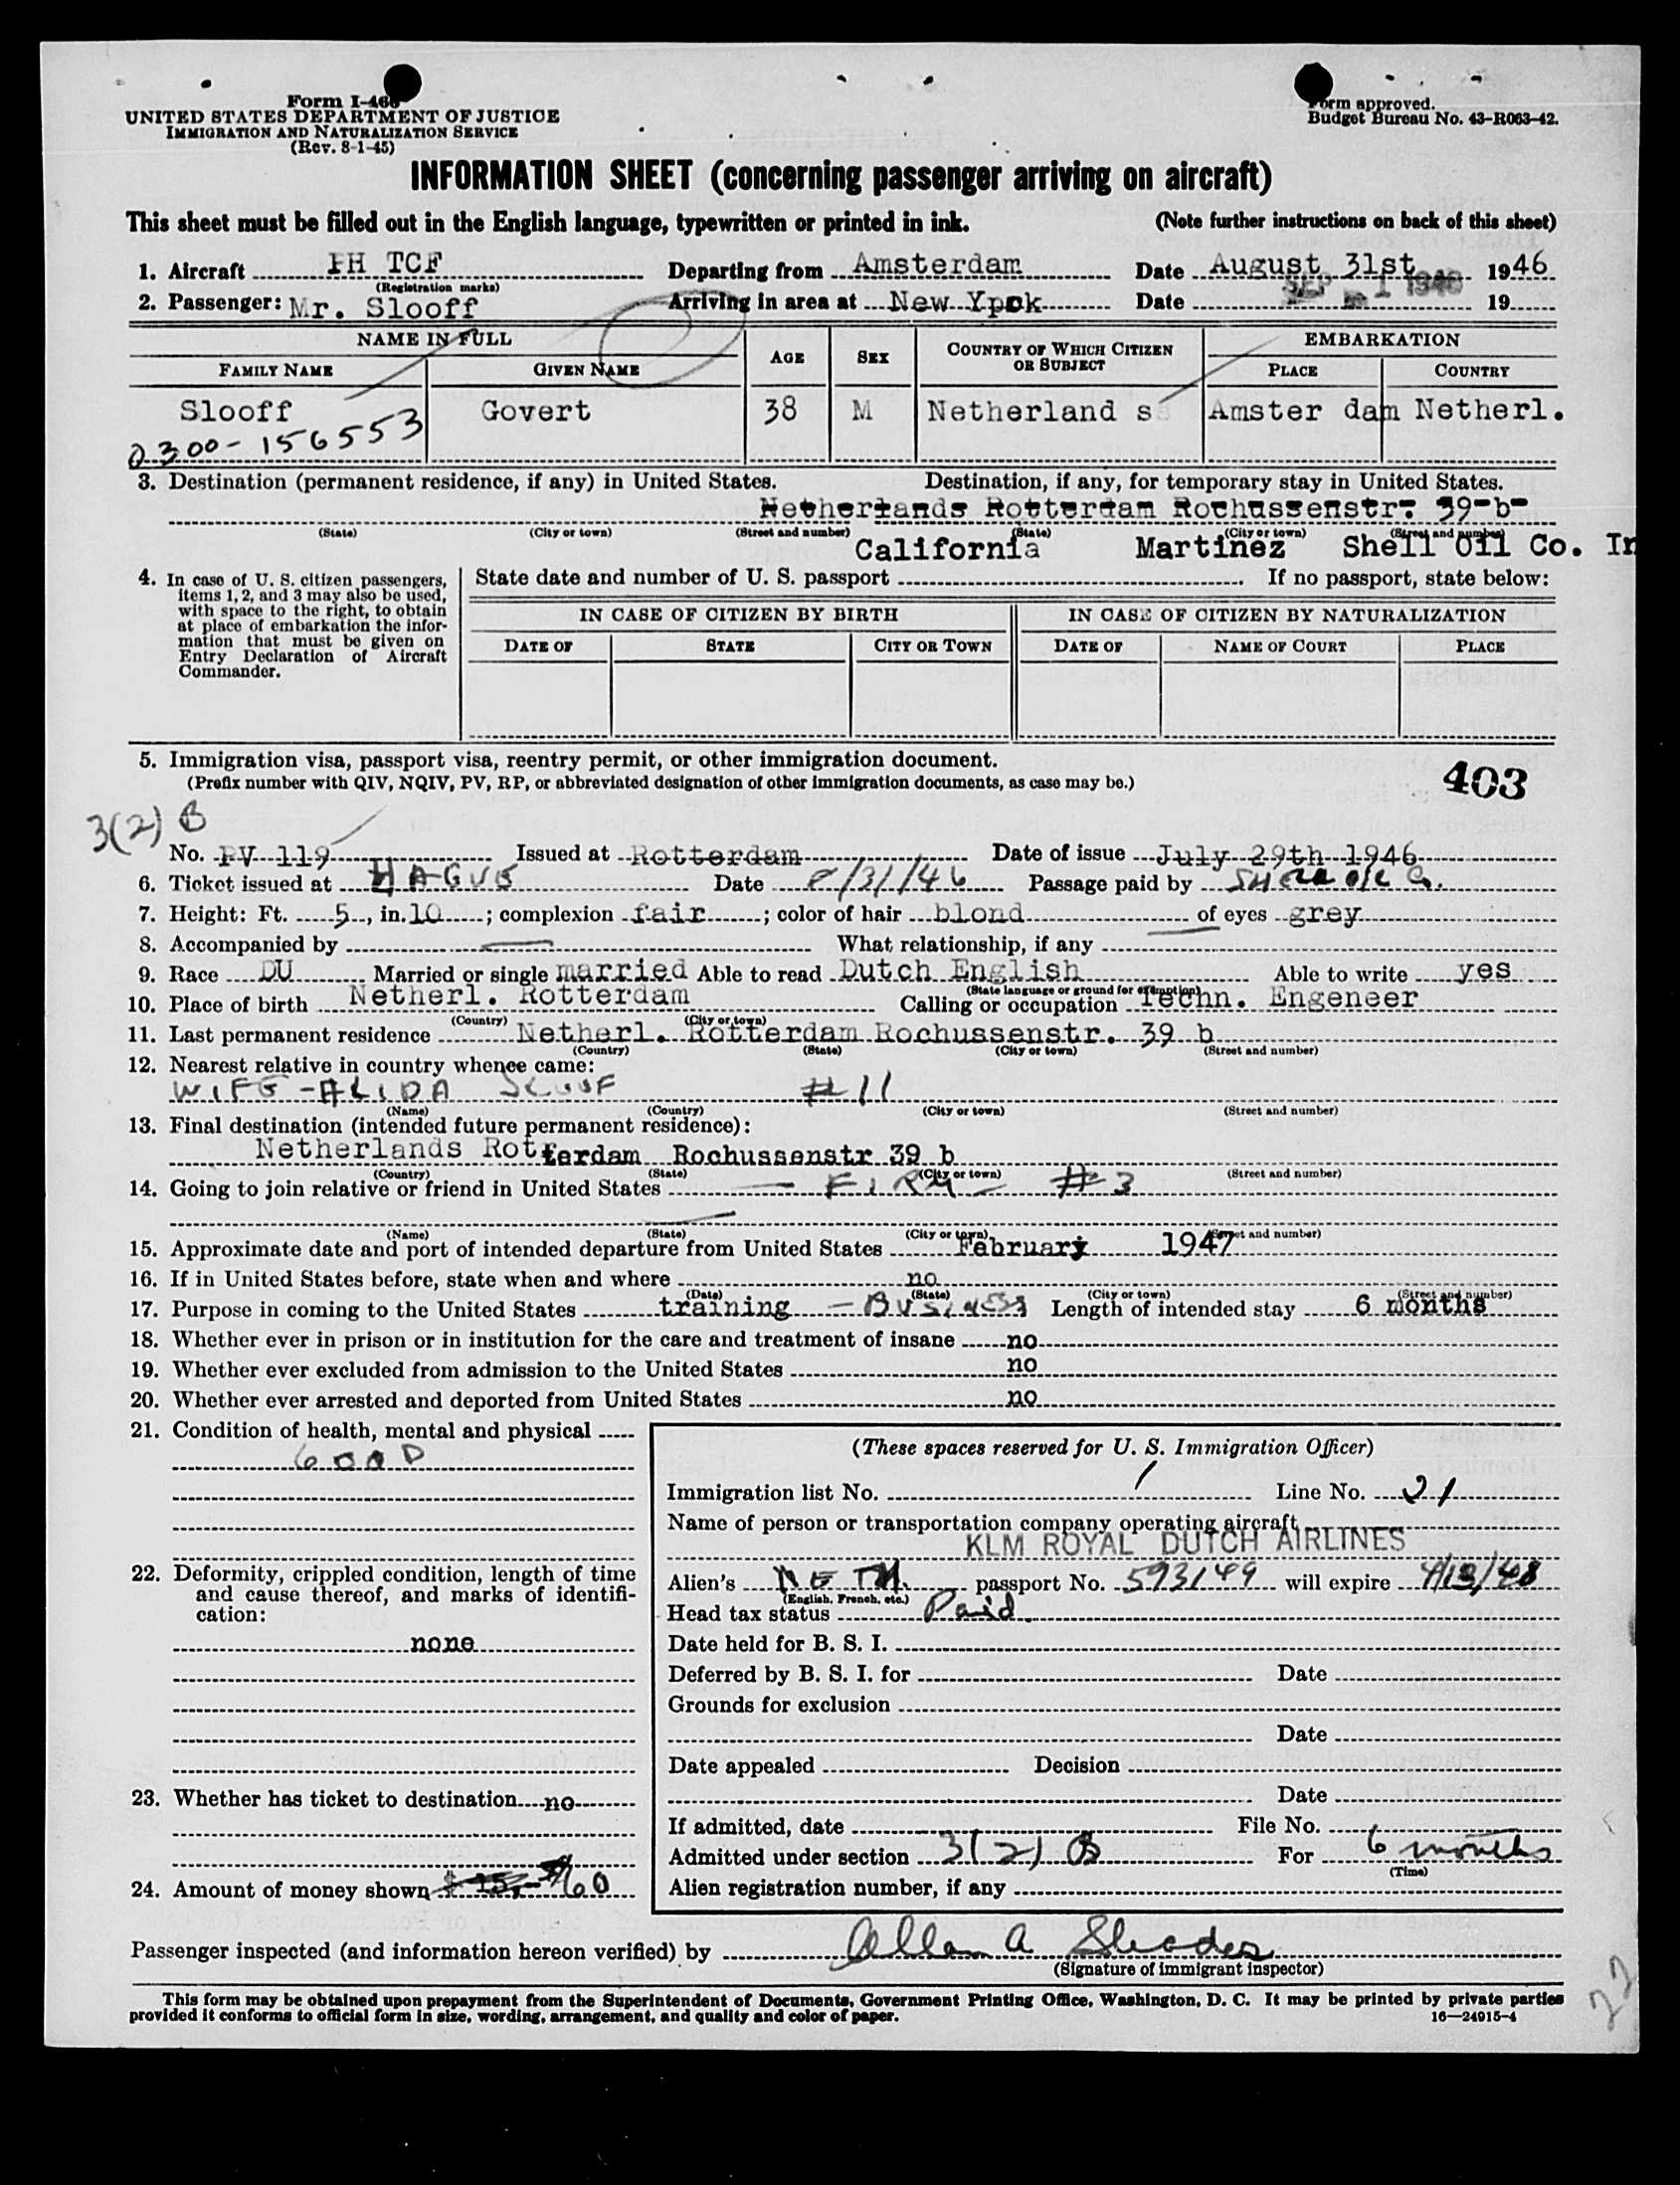 Form I-466
UNITED STATES DEPARTMENT OF JUSTICE
IMMIGRATION AND NATURALIZATION SERVICE
(Rev. 8-1-45)
Form approved.
Budget Bureau No. 43-R063-42.
INFORMATION SHEET (concerning passenger arriving on aircraft)
This sheet must be filled out in the English language, typewritten or printed in ink. (Note further instructions on back of this sheet)
1. Aircraft PH TCF Departing from Amsterdam Date August 31st 1946
(Registration marks)
2. Passenger: Mr. Slooff Arriving in area at New Ypok Date SEP 1 1946 19
NAME IN FULL AGE SEX COUNTRY OF WHICH CITIZEN OR SUBJECT EMBARKATION
FAMILY NAME GIVEN NAME PLACE COUNTRY
Slooff Govert 38 M Netherland s Amster dam Netherl.
0300-156553
3. Destination (permanent residence, if any) in United States. Destination, if any, for temporary stay in United States.
Netherlands Rotterdam Rochussenstr. 39-b-
(State) (City or town) (Street and number) (State) (City or town) (Street and number)
California Martinez Shell Oil Co. In
4. In case of U. S. citizen passengers, items 1, 2, and 3 may also be used, with space to the right, to obtain at place of embarkation the information that must be given on Entry Declaration of Aircraft Commander.
State date and number of U. S. passport If no passport, state below:
IN CASE OF CITIZEN BY BIRTH IN CASE OF CITIZEN BY NATURALIZATION
DATE OF STATE CITY OR TOWN DATE OF NAME OF COURT PLACE
5. Immigration visa, passport visa, reentry permit, or other immigration document.
(Prefix number with QIV, NQIV, PV, RP, or abbreviated designation of other immigration documents, as case may be.)
403
3(2) B
No. PV 119 Issued at Rotterdam Date of issue July 29th 1946
6. Ticket issued at HAGUE Date 8/31/46 Passage paid by SHELL OIL Co.
7. Height: Ft. 5, in. 10; complexion fair; color of hair blond of eyes grey
8. Accompanied by — What relationship, if any
9. Race DU Married or single married Able to read Dutch English Able to write yes
(State language or ground for exemption)
10. Place of birth Netherl. Rotterdam Calling or occupation Techn. Engeneer
(Country) (City or town)
11. Last permanent residence Netherl. Rotterdam Rochussenstr. 39 b
(Country) (State) (City or town) (Street and number)
12. Nearest relative in country whence came:
WIFE - ALIDA SLOOF #11
(Name) (Country) (City or town) (Street and number)
13. Final destination (intended future permanent residence):
Netherlands Rotterdam Rochussenstr 39 b
(Country) (State) (City or town) (Street and number)
14. Going to join relative or friend in United States — FIRM — #3
(Name) (State) (City or town) (Street and number)
15. Approximate date and port of intended departure from United States February 1947
16. If in United States before, state when and where no
(Date) (State) (City or town) (Street and number)
17. Purpose in coming to the United States training - BUSINESS Length of intended stay 6 months
18. Whether ever in prison or in institution for the care and treatment of insane no
19. Whether ever excluded from admission to the United States no
20. Whether ever arrested and deported from United States no
21. Condition of health, mental and physical
GOOD
22. Deformity, crippled condition, length of time and cause thereof, and marks of identification:
none
23. Whether has ticket to destination no
24. Amount of money shown $ 15,- $160
(These spaces reserved for U. S. Immigration Officer)
Immigration list No. 1 Line No. 21
Name of person or transportation company operating aircraft
KLM ROYAL DUTCH AIRLINES
Alien's NETH. passport No. 593149 will expire 4/18/48
(English, French, etc.)
Head tax status Paid
Date held for B. S. I.
Deferred by B. S. I. for Date
Grounds for exclusion
Date
Date appealed Decision
Date
If admitted, date File No.
Admitted under section 3(2) B For 6 months
(Time)
Alien registration number, if any
Passenger inspected (and information hereon verified) by Allan A
(Signature of immigrant inspector)
This form may be obtained upon prepayment from the Superintendent of Documents, Government Printing Office, Washington, D. C. It may be printed by private parties
provided it conforms to official form in size, wording, arrangement, and quality and color of paper. 16—24915-4
22